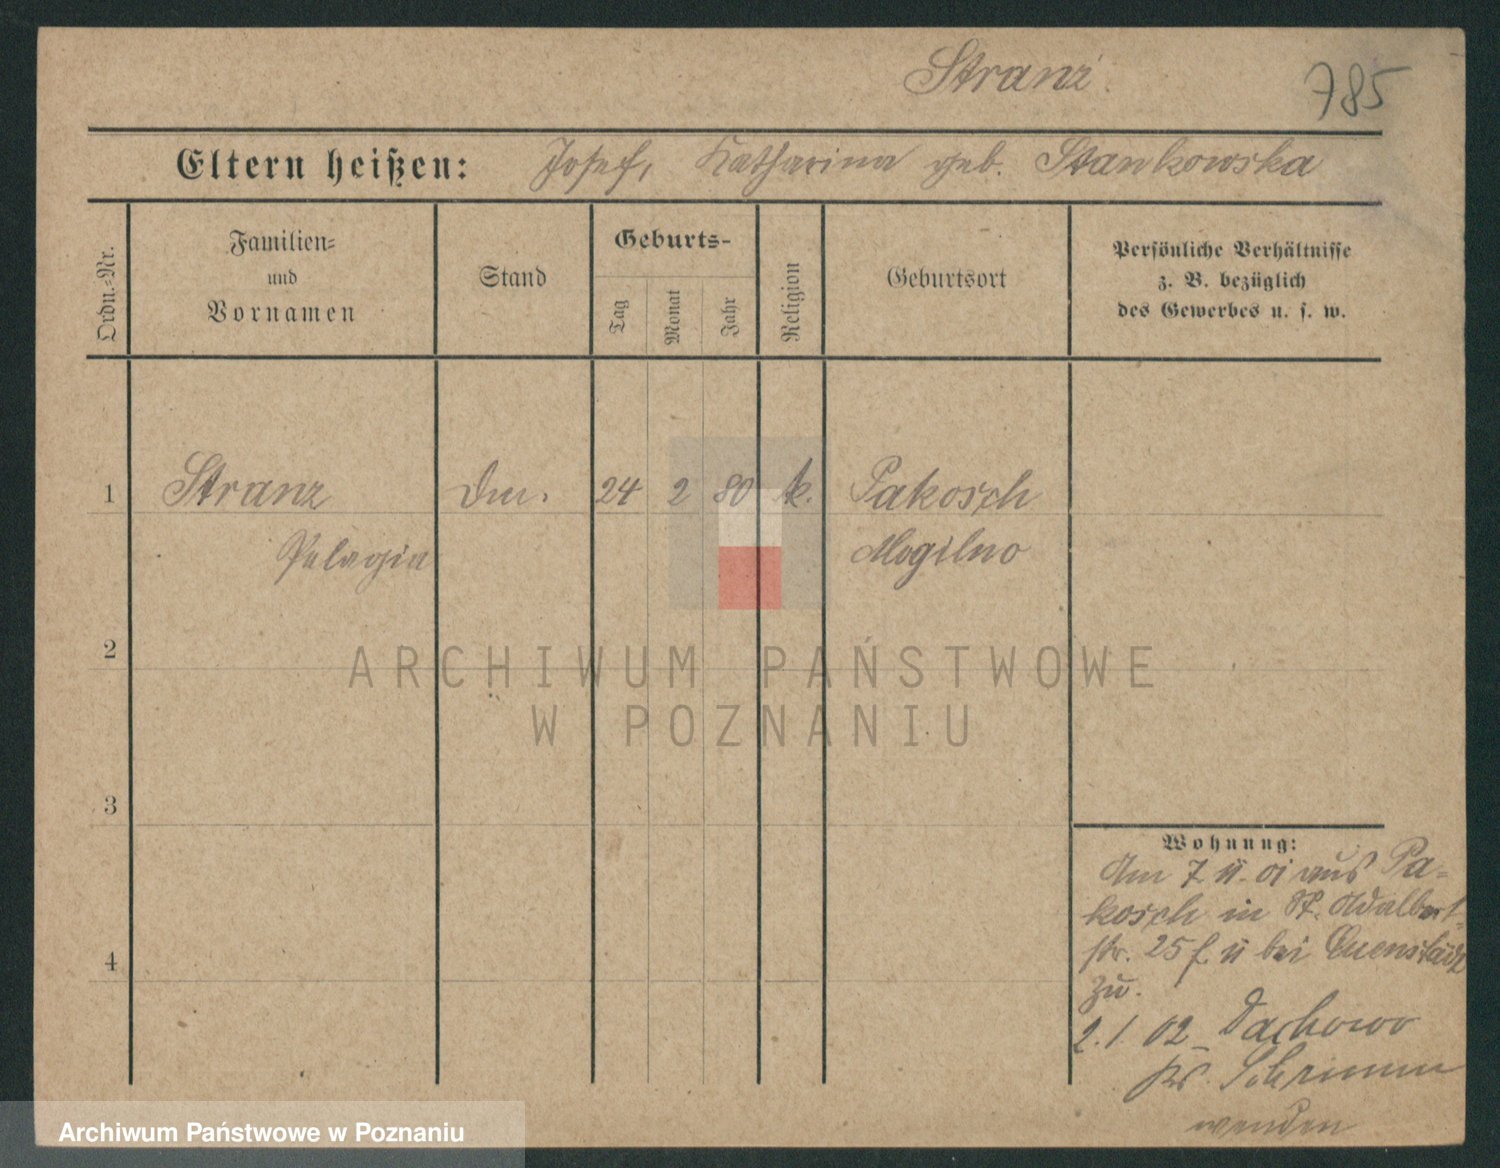 Stranz
785
Eltern heißen: Josef, Katharina geb. Stankowska
Ordn.=Nr.
Familien=
und
Vornamen
Stand
Geburts-
Tag
Monat
Jahr
Religion
Geburtsort
Persönliche Verhältnisse
z. B. bezüglich
des Gewerbes u. s. w.
1 Stranz 24 2 80 k. Pakosch
Pelagia Mogilno
2
ARCHIWUM PAŃSTWOWE
W POZNANIU
3
Wohnung:
Am 7. 01 aus Pa-
kosch in St. Adalbert
4
str. 25 bei Quenstädt
zu.
2.1 02 Dachowo
Kr. Schrimm
wenden
Archiwum Państwowe w Poznaniu